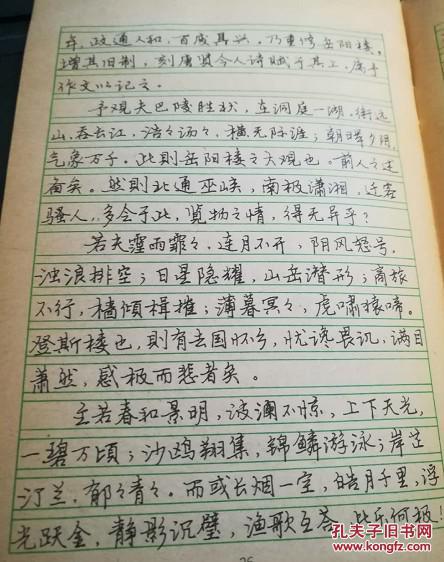 年，政通人和，百废具兴，乃重修岳阳楼，
增其旧制，刻唐贤今人诗赋于其上，属予
作文以记之。
予观夫巴陵胜状，在洞庭一湖。衔远
山，吞长江，浩々汤々，横无际涯；朝晖夕阴，
气象万千。此则岳阳楼之大观也。前人之述
备矣。然则北通巫峡，南极潇湘，迁客
骚人，多会于此，览物之情，得无异乎？
若夫霪雨霏々，连月不开，阴风怒号，
浊浪排空；日星隐耀，山岳潜形；商旅
不行，樯倾楫摧；薄暮冥々，虎啸猿啼。
登斯楼也，则有去国怀乡，忧谗畏讥，满目
萧然，感极而悲者矣。
至若春和景明，波澜不惊，上下天光，
一碧万顷；沙鸥翔集，锦鳞游泳；岸芷
汀兰，郁々青々。而或长烟一空，皓月千里，浮
光跃金，静影沉璧，渔歌互答，此乐何极！
26
孔夫子旧书网
www.kongfz.com